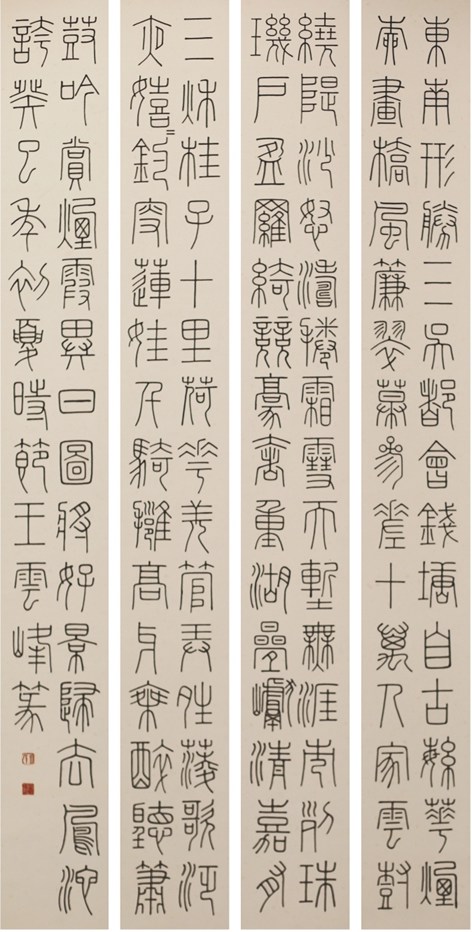 東南形勝三吳都會錢塘自古繁華煙
柳畫橋風簾翠幕參差十萬人家雲樹
繞隄沙怒濤捲霜雪天塹無涯市列珠
璣戶盈羅綺競豪奢重湖疊巘清嘉有
三秋桂子十里荷花羌管弄晴菱歌泛
夜嬉=釣叟蓮娃千騎擁高牙乘醉聽簫
鼓吟賞煙霞異日圖將好景歸去鳳池
誇癸巳年初夏時節王雲峰篆